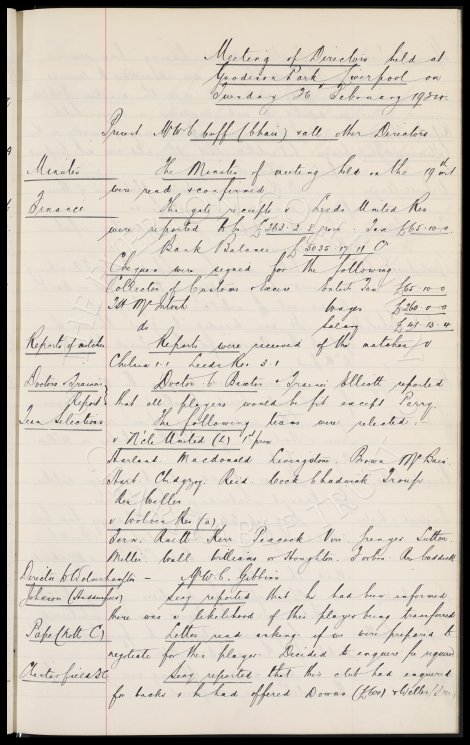 Meeting of Directors held at
Goodison Park Liverpool on
Tuesday 26th February 1924.
Present Mr W C Cuff (Chair) & all other Directors
Minutes The Minutes of meeting held on the 19th inst
were read & confirmed
Finance The gate receipts v Leeds United Res
were reported to be £263 . 2 . 8 Tax £65 . 10 . 0
Bank Balance £3035 17 11 Cr
Cheques were signed for the following
Collector of Customs & Excise Entert Tax £65 . 10 . 0
T H McIntosh Wages £260 . 0 . 0
do Salary £41 . 13 . 4
Reports of matches Reports were received of the matches v
Chelsea 1.1. Leeds Res 3.1
Doctors & Trainers Report Doctor C Baxter & Trainer Elliott reported
that all players would be fit except Parry.
Team Selections The following teams were selected :-
v N'cle United (h) 1st
Harland. Macdonald Livingstone. Brown McBain.
Hart. Chedgzoy. Peacock Cock Chadwick Troup
Res Weller
v Wolves Res (a)
Fern. Raitt Kerr Peacock Virr. Grenyer Sutton.
Miller. Wall Williams or Houghton. Forbes Res Caddick
Director to Wolverhampton - Mr W. C. Gibbins
Johnson (Huddersfield) Secy reported that he had been informed
there was a likelihood of this player being transferred
Pape (Notts C) Letter read asking if we were prepared to
negotiate for this player. Decided to enquire fee required
Chesterfield FC Secy reported that this club had enquired
for backs & he had offered Downs (£600) & Weller